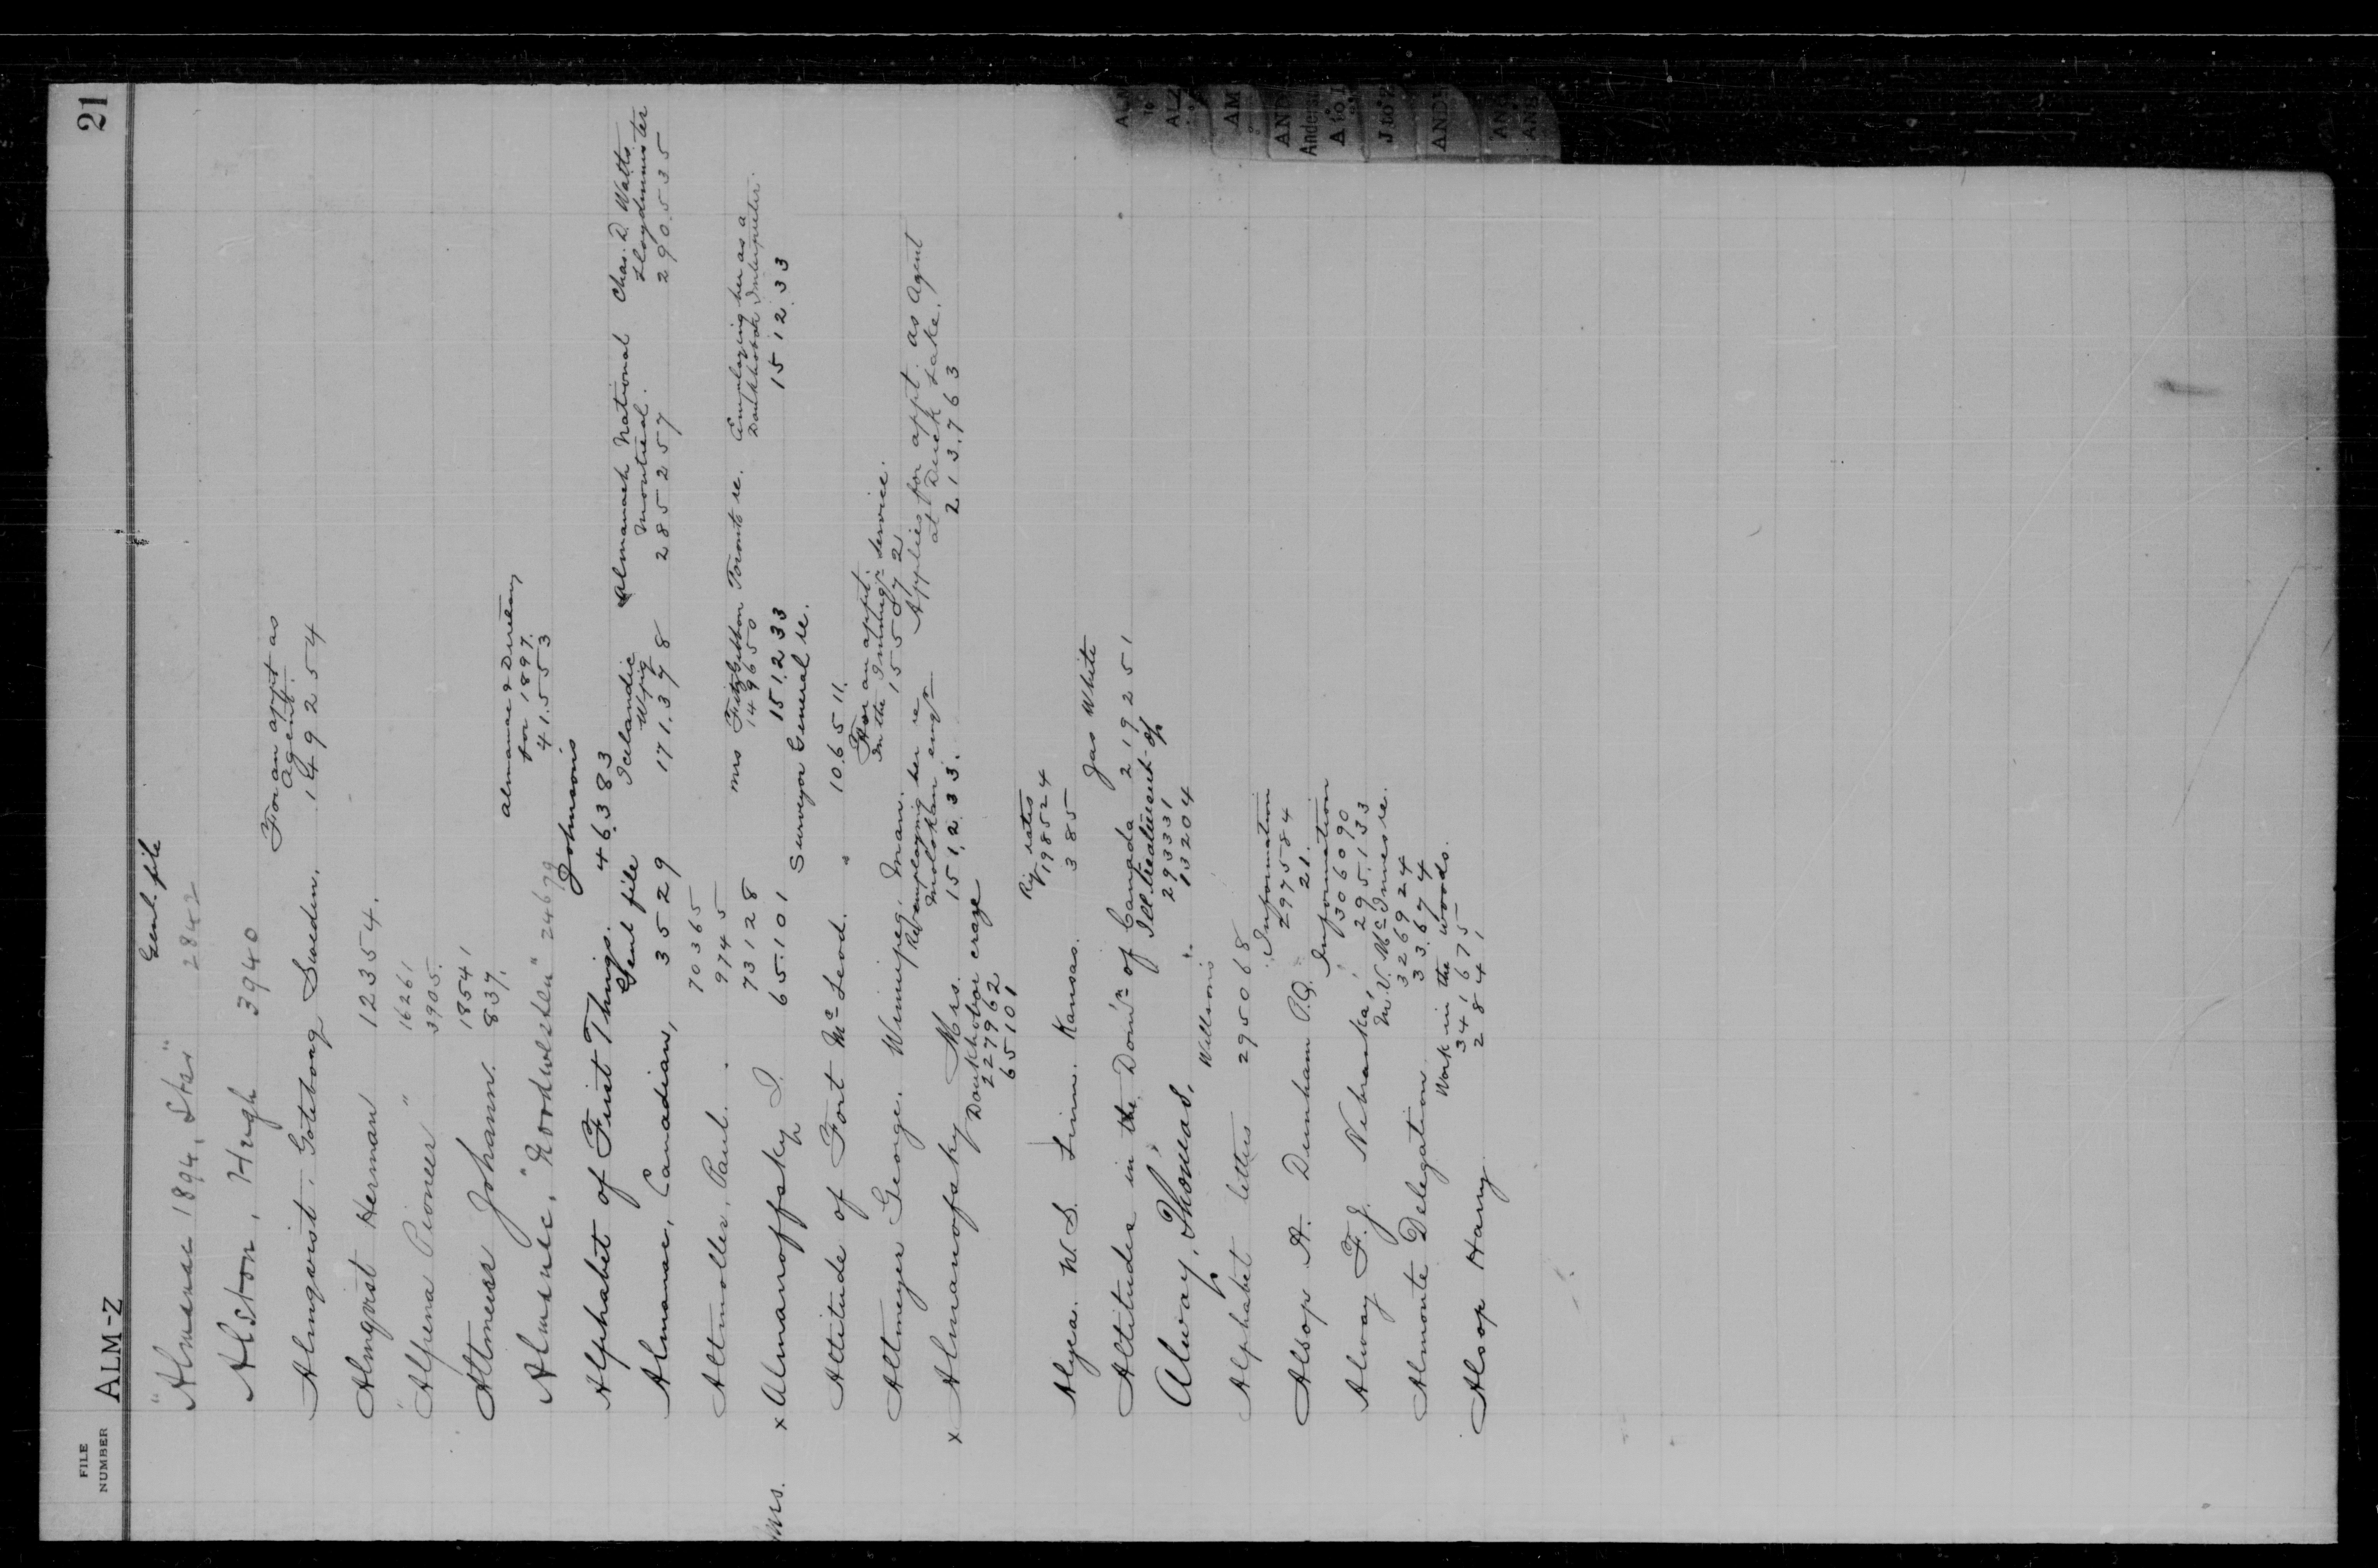 FILE NUMBER ALM-Z 21
Genl. file
"Almanac 1894, Star" 2842
Alston, Hugh 3940
For an appt as
Agent.
Almqvist. Goteborg Sweden. 149254
Almqvist Herman 12354.
"Alpena Pioneer" 16261
3905.
18541
Altmeiar Johann. 837.
Almanac & Directory
for 1897.
41.553
Almanac, "Nordvesten" 24679
Johnson's
Alphabet of First Things. 46383
Gent file Icelandic Almanach National Chas. D. Watts
Wpig Montreal. Lloydminster
Almanac, Canadian, 3529 171.398 285257 290.535
70365
Altmoller, Paul. 9745
73128 Mrs Fitzgibbon Toronto re. Employing her as a
149650 Doukhobor Interpreter.
Mrs. x Almanoffsky I. 65.101 151.233 1512.33
Surveyor General re.
Altitude of Fort McLeod. " 106511.
For an appt.
in the Immigr. service.
Altmeyer George. Winnipeg. Man. 155872
Re employing her re Applies for appt. as Agent
Molokan emgn at Duck Lake.
x Almanofsky Mrs. 151,233. 213.763
Doukhobor craze
227962
65101
Ry rates
198524
Alyea. W. S. Linn. Kansas. 385
Jas White
Altitudes in the Dom'n of Canada 219251
Illtreatment of
293331
Alway, Thomas. 13204
Willson's
Alphabet letters 295068
Information
297584
Alsop A. Dunham P.Q. 21.
Information
306090
Alway F. J. Nebraska, 295.133
M. V. McInnes re.
326924
Almonte Delegation 33.674
Work in the woods.
341675
Alsop Harry 2841
ALM to ALZ
AM
AND
Anders
A to I
J to Z
AND
ANG
ANS